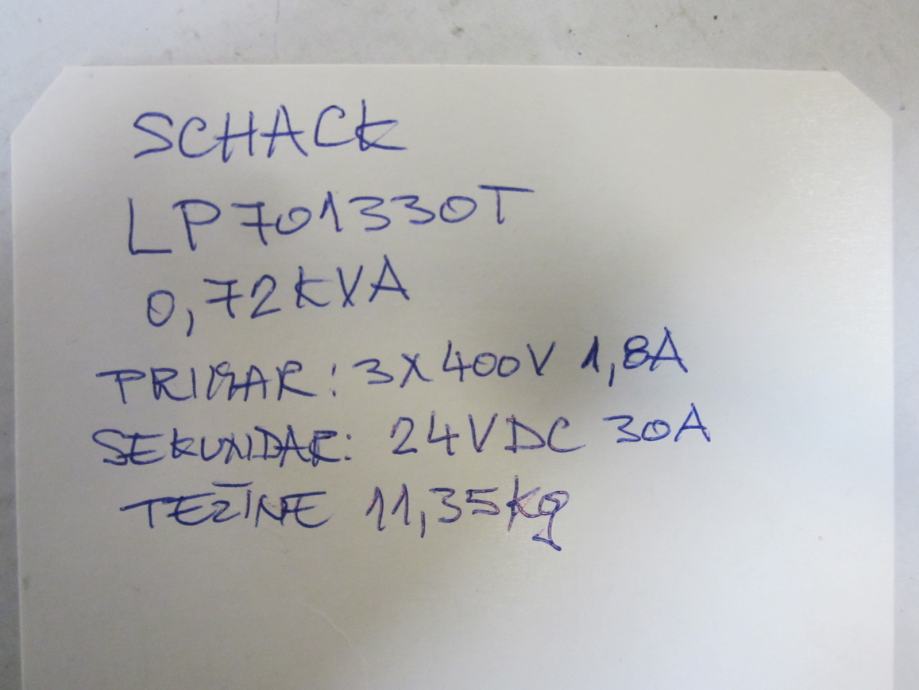 SCHACK
LP701330T
0,72KVA
PRIMAR: 3X400V 1,8A
SEKUNDAR: 24VDC 30A
TEŽINE 11,35kg